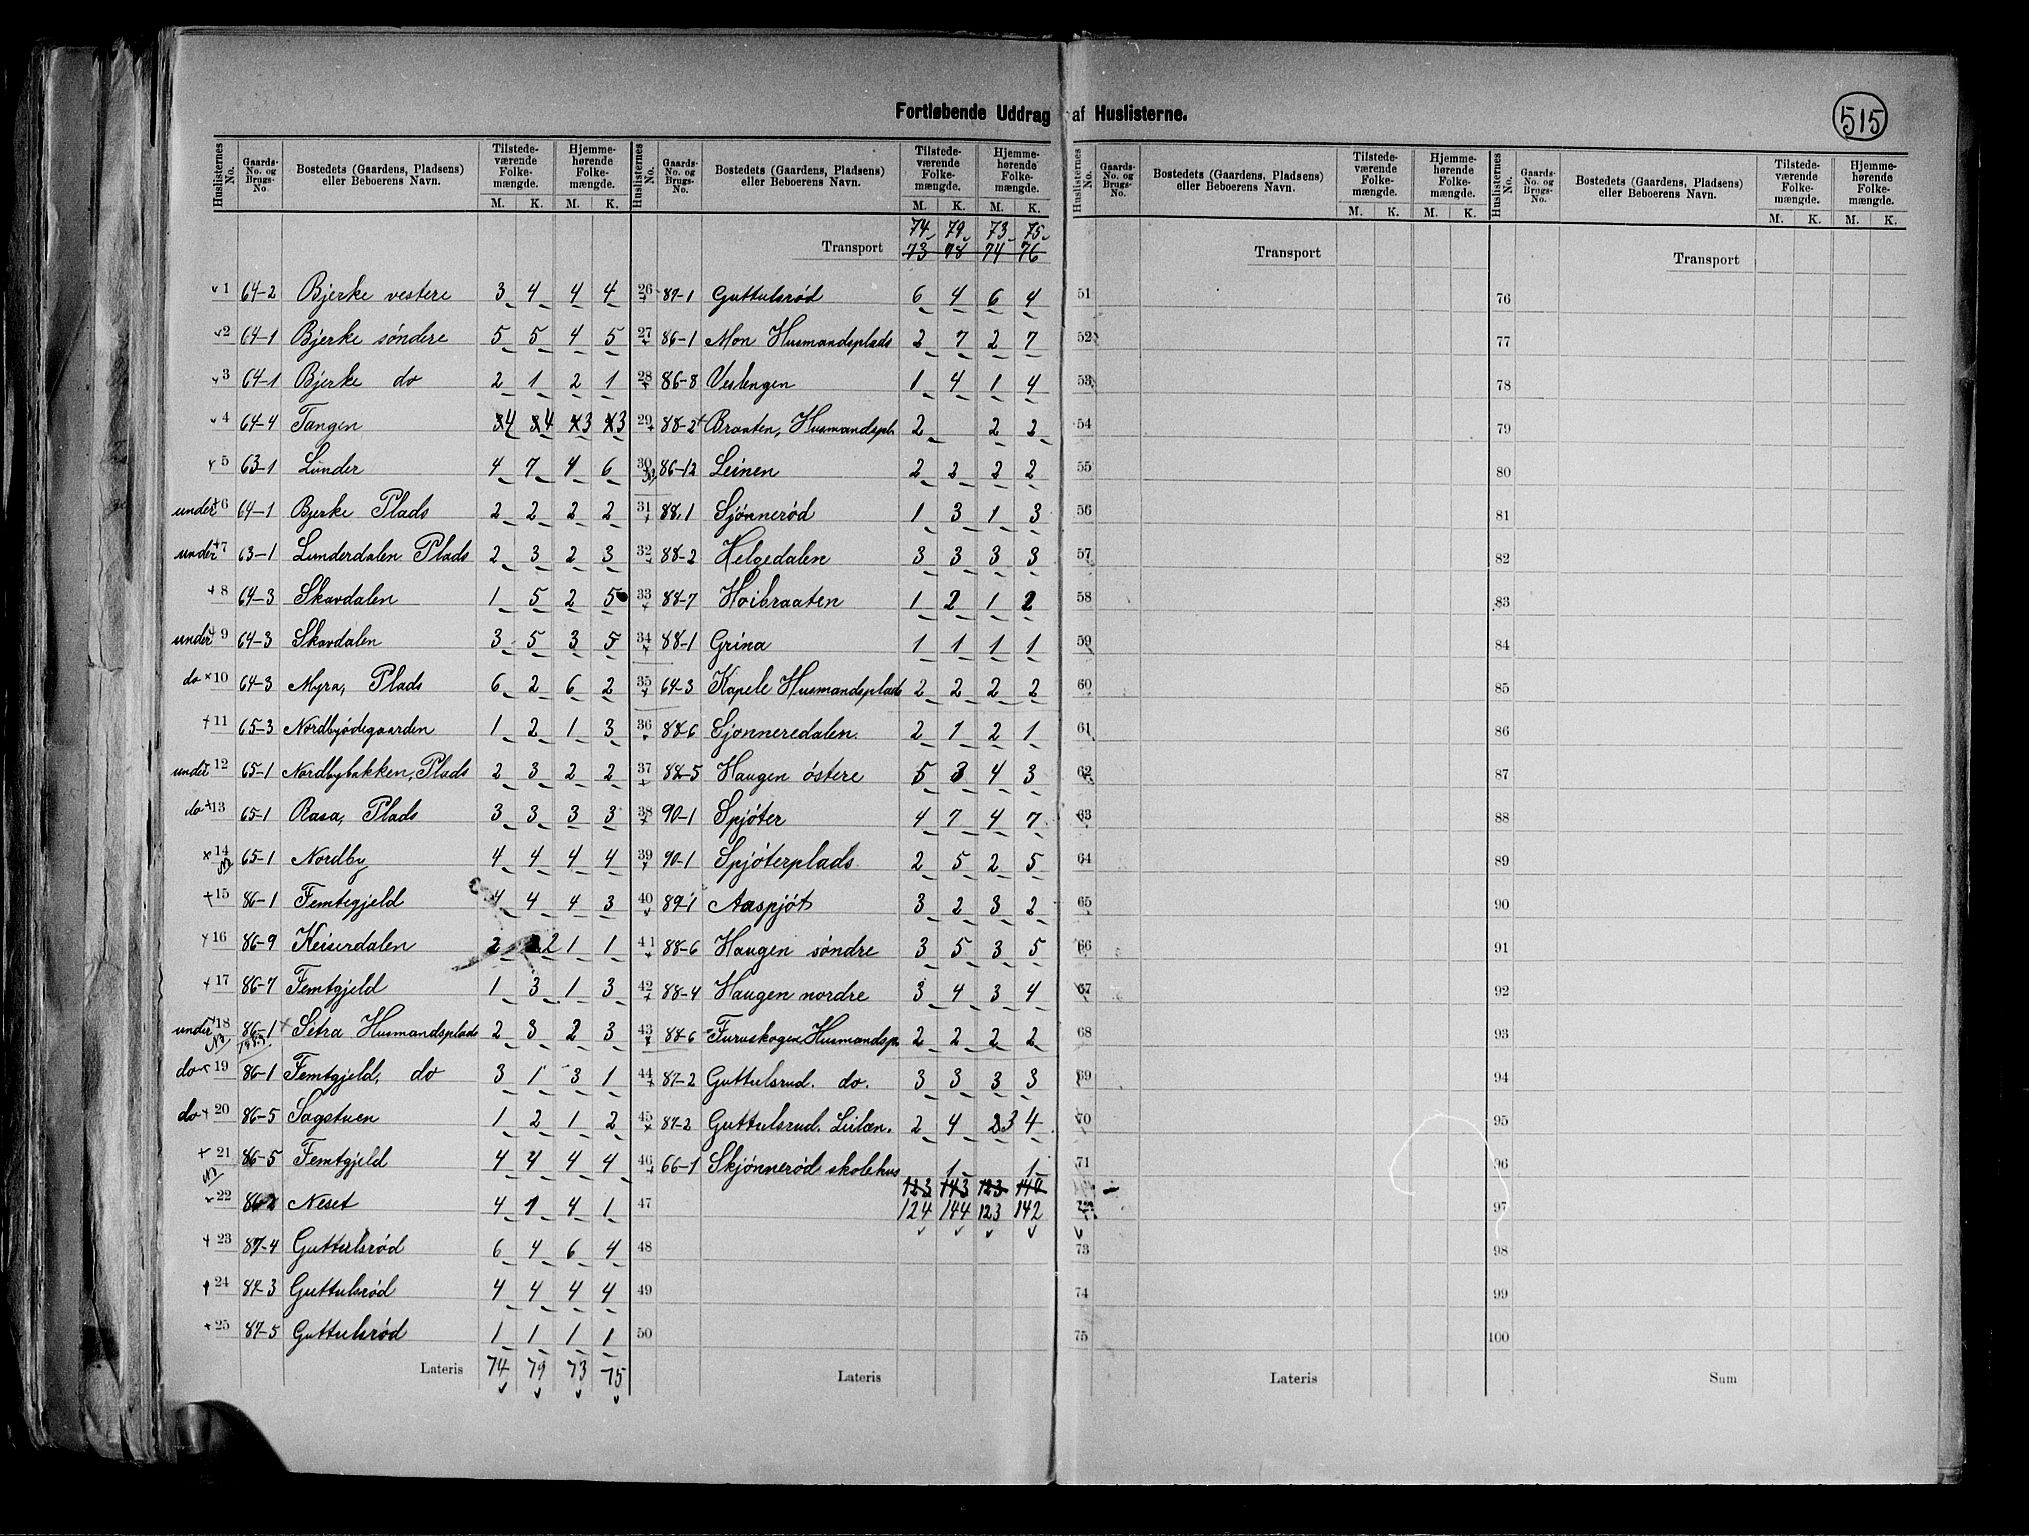 Fortløbende Uddrag af Huslisterne.
515
Huslisternes No. Gaards-No. og Brugs-No. Bostedets (Gaardens, Pladsens) eller Beboerens Navn. Tilstedeværende Folkemængde. M. K. Hjemmehørende Folkemængde. M. K.
1 64-2 Bjerke vestere 3 4 4 4
2 64-1 Bjerke søndere 5 5 4 5
3 64-1 Bjerke do 2 1 2 1
4 64-4 Tangen 4 4 3 3
5 63-1 Lunder 4 7 4 6
under 6 64-1 Bjerke Plads 2 2 2 2
under 7 63-1 Lunderdalen Plads 2 3 2 3
8 64-3 Skavdalen 1 5 2 5
under 9 64-3 Skavdalen 3 5 3 5
do 10 64-3 Myra, Plads 6 2 6 2
11 65-3 Nordbyødegaarden 1 2 1 3
under 12 65-1 Nordbybakken, Plads 2 3 2 2
do 13 65-1 Rasa, Plads 3 3 3 3
14 65-1 Nordby 4 4 4 4
15 86-1 Femtegjeld 4 4 4 3
16 86-9 Keiserdalen 2 2 1 1
17 86-7 Femtgjeld 1 3 1 3
under 18 86-1 Setra Husmandsplads 2 3 2 3
do 19 86-1 Femtgjeld, do 3 1 3 1
do 20 86-5 Sagstuen 1 2 1 2
21 86-5 Femtgjeld 4 4 4 4
22 86-2 Neset 4 1 4 1
23 87-4 Guttulsrød 6 4 6 4
24 87-3 Guttulsrød 4 4 4 4
25 87-5 Guttulsrød 1 1 1 1
Lateris 74 79 73 75
Huslisternes No. Gaards-No. og Brugs-No. Bostedets (Gaardens, Pladsens) eller Beboerens Navn. Tilstedeværende Folkemængde. M. K. Hjemmehørende Folkemængde. M. K.
74 79 73 75
Transport 73 78 74 76
26 87-1 Guttulsrød 6 4 6 4
27 86-1 Mon Husmandsplads 2 7 2 7
28 86-8 Veslengen 1 4 1 4
29 88-2 Braaten, Husmandspl. 2 2 2
30 86-12 Leinen 2 2 2 2
31 88.1 Sjønnerød 1 3 1 3
32 88-2 Helgedalen 3 3 3 3
33 88-7 Høibraaten 1 2 1 2
34 88-1 Grina 1 1 1 1
35 64-3 Kapele Husmandsplads 2 2 2 2
36 88-6 Sjønneredalen 2 1 2 1
37 88-5 Haugen østere 5 3 4 3
38 90-1 Spjøter 4 7 4 7
39 90-1 Spjøterplads 2 5 2 5
40 89-1 Aaspjøt 3 2 3 2
41 88-6 Haugen søndre 3 5 3 5
42 88-4 Haugen nordre 3 4 3 4
43 88-6 Furuskogen Husmandspl. 2 2 2 2
44 87-2 Guttulsrud. do. 3 3 3 3
45 87-2 Guttulsrud. Leilæn. 2 4 2 3 4
46 66-1 Skjønnerød skolehus 1 1
123 143 123 140
47 124 144 123 142
48
49
50
Lateris
Huslisternes No. Gaards-No. og Brugs-No. Bostedets (Gaardens, Pladsens) eller Beboerens Navn. Tilstedeværende Folkemængde. M. K. Hjemmehørende Folkemængde. M. K.
Transport
51
52
53
54
55
56
57
58
59
60
61
62
63
64
65
66
67
68
69
70
71
72
73
74
75
Lateris
Huslisternes No. Gaards-No. og Brugs-No. Bostedets (Gaardens, Pladsens) eller Beboerens Navn. Tilstedeværende Folkemængde. M. K. Hjemmehørende Folkemængde. M. K.
Transport
76
77
78
79
80
81
82
83
84
85
86
87
88
89
90
91
92
93
94
95
96
97
98
99
100
Sum